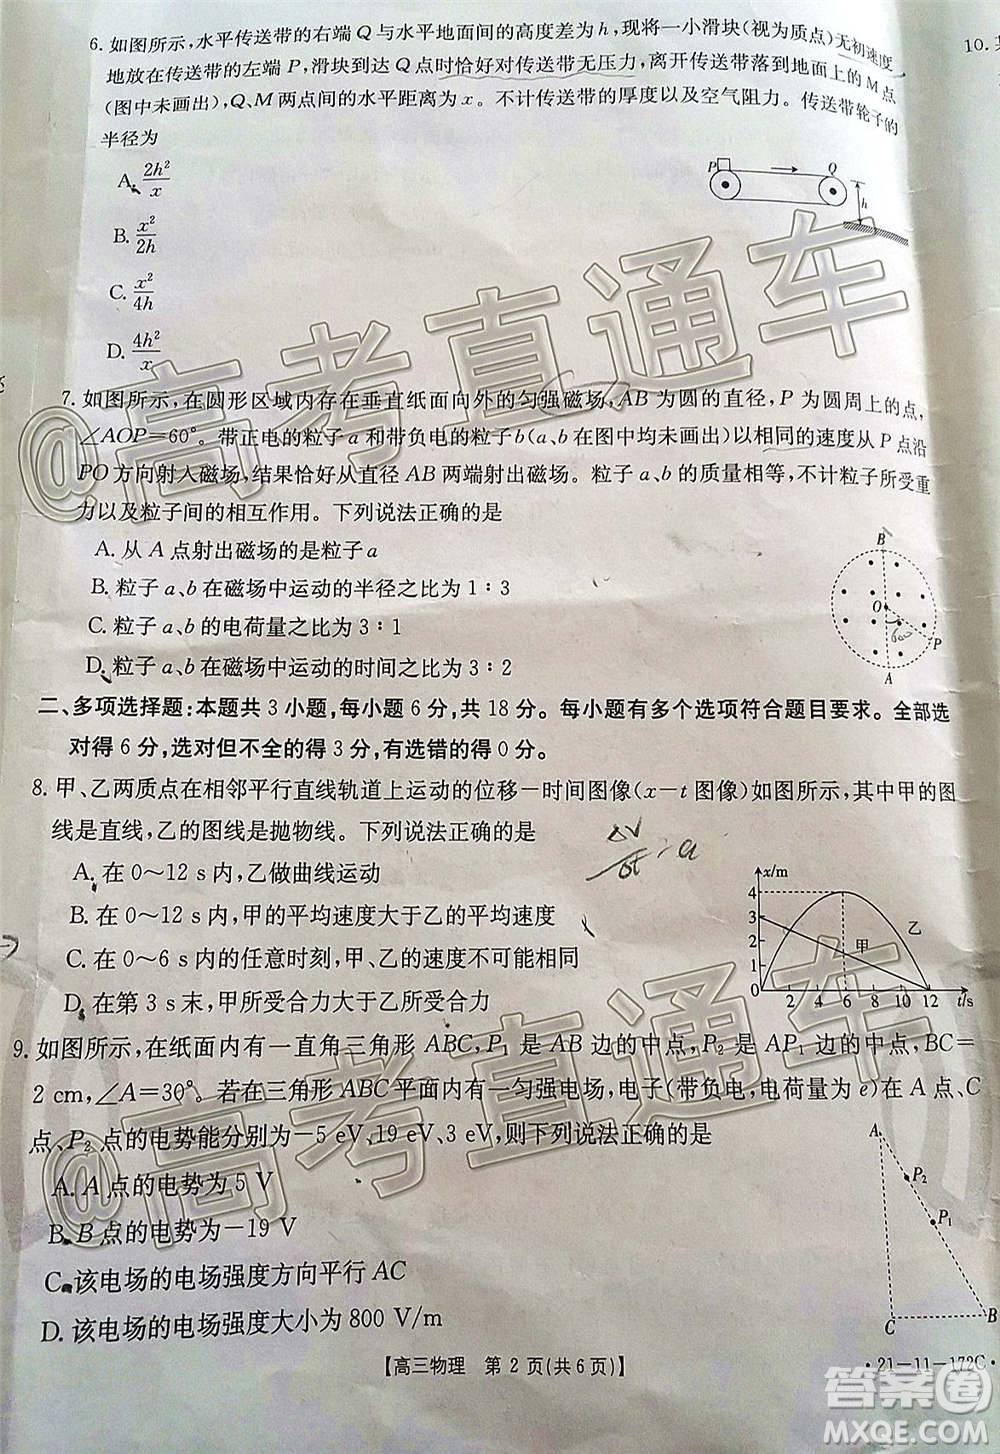 6. 如图所示,水平传送带的右端 Q 与水平地面间的高度差为 h,现将一小滑块(视为质点)无初速度
地放在传送带的左端 P,滑块到达 Q 点时恰好对传送带无压力,离开传送带落到地面上的 M 点
(图中未画出),Q、M 两点间的水平距离为 x。不计传送带的厚度以及空气阻力。传送带轮子的
半径为
A. 2h²/x
B. x²/2h
C. x²/4h
D. 4h²/x
P Q h
10.
7. 如图所示,在圆形区域内存在垂直纸面向外的匀强磁场,AB 为圆的直径,P 为圆周上的点,
∠AOP=60°。带正电的粒子 a 和带负电的粒子 b(a、b 在图中均未画出)以相同的速度从 P 点沿
PO 方向射入磁场,结果恰好从直径 AB 两端射出磁场。粒子 a、b 的质量相等,不计粒子所受重
力以及粒子间的相互作用。下列说法正确的是
A. 从 A 点射出磁场的是粒子 a
B. 粒子 a、b 在磁场中运动的半径之比为 1∶3
C. 粒子 a、b 的电荷量之比为 3∶1
D. 粒子 a、b 在磁场中运动的时间之比为 3∶2
B
O
60°
P
A
二、多项选择题:本题共 3 小题,每小题 6 分,共 18 分。每小题有多个选项符合题目要求。全部选
对得 6 分,选对但不全的得 3 分,有选错的得 0 分。
8. 甲、乙两质点在相邻平行直线轨道上运动的位移－时间图像(x－t 图像)如图所示,其中甲的图
线是直线,乙的图线是抛物线。下列说法正确的是
A. 在 0～12 s 内,乙做曲线运动
B. 在 0～12 s 内,甲的平均速度大于乙的平均速度
C. 在 0～6 s 内的任意时刻,甲、乙的速度不可能相同
D. 在第 3 s 末,甲所受合力大于乙所受合力
ΔV/Δt = a
x/m
4
3
2
1
0 2 4 6 8 10 12 t/s
甲
乙
9. 如图所示,在纸面内有一直角三角形 ABC,P₁ 是 AB 边的中点,P₂ 是 AP₁ 边的中点,BC=
2 cm,∠A=30°。若在三角形 ABC 平面内有一匀强电场,电子(带负电,电荷量为 e)在 A 点、C
点、P₂ 点的电势能分别为－5 eV、19 eV、3 eV,则下列说法正确的是
A. A 点的电势为 5 V
B. B 点的电势为－19 V
C. 该电场的电场强度方向平行 AC
D. 该电场的电场强度大小为 800 V/m
A
P₂
P₁
C B
【高三物理 第 2 页(共 6 页)】
·21－11－172C·
@高考直通车
@高考直通车
答案圈
MXQE.COM